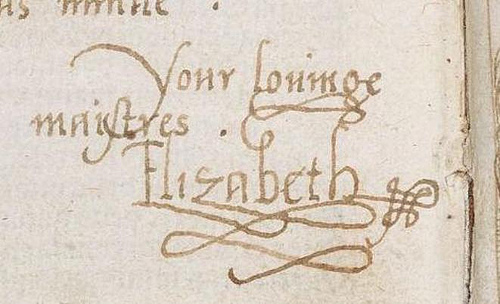 Your lovinge
maistres .
Elizabeth